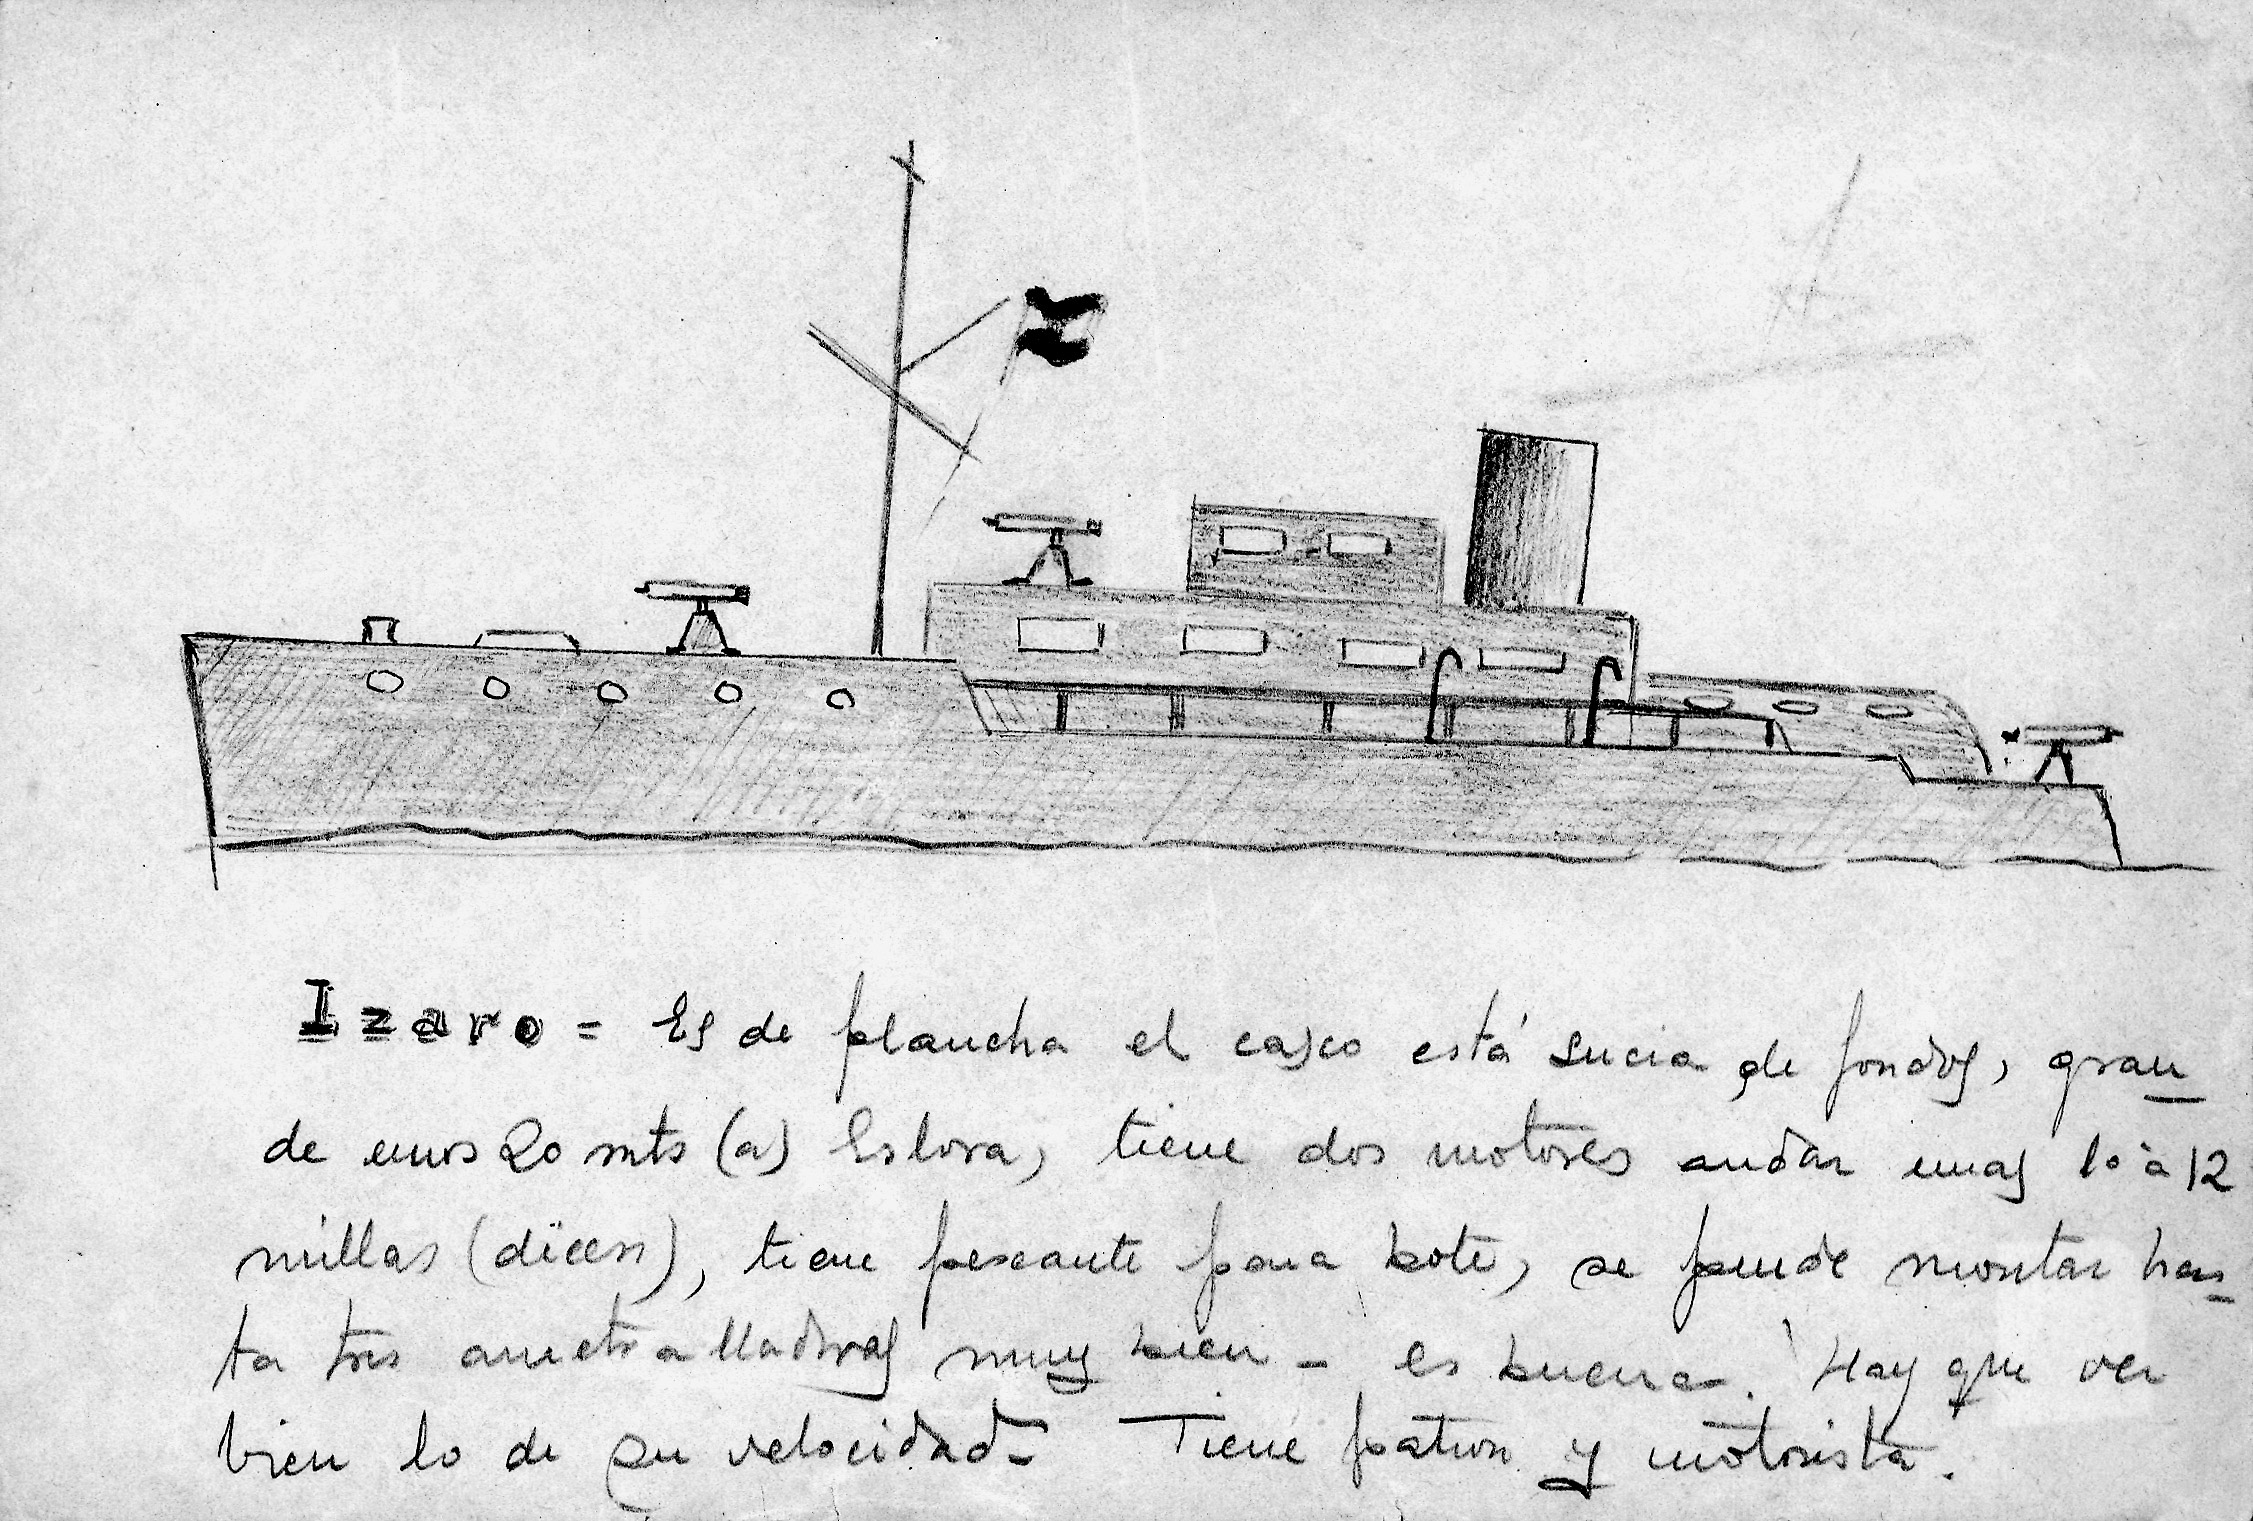 Izaro = Es de plancha el casco está sucia de fondos, gran_
de unos 20 mts (a) Eslora, tiene dos motores andar unas 10 a 12
millas (dicen), tiene pescante para bote, se puede montar has_
ta tres ametralladoras muy bien - es buena. Hay que ver
bien lo de su velocidad - Tiene patron y motorista.